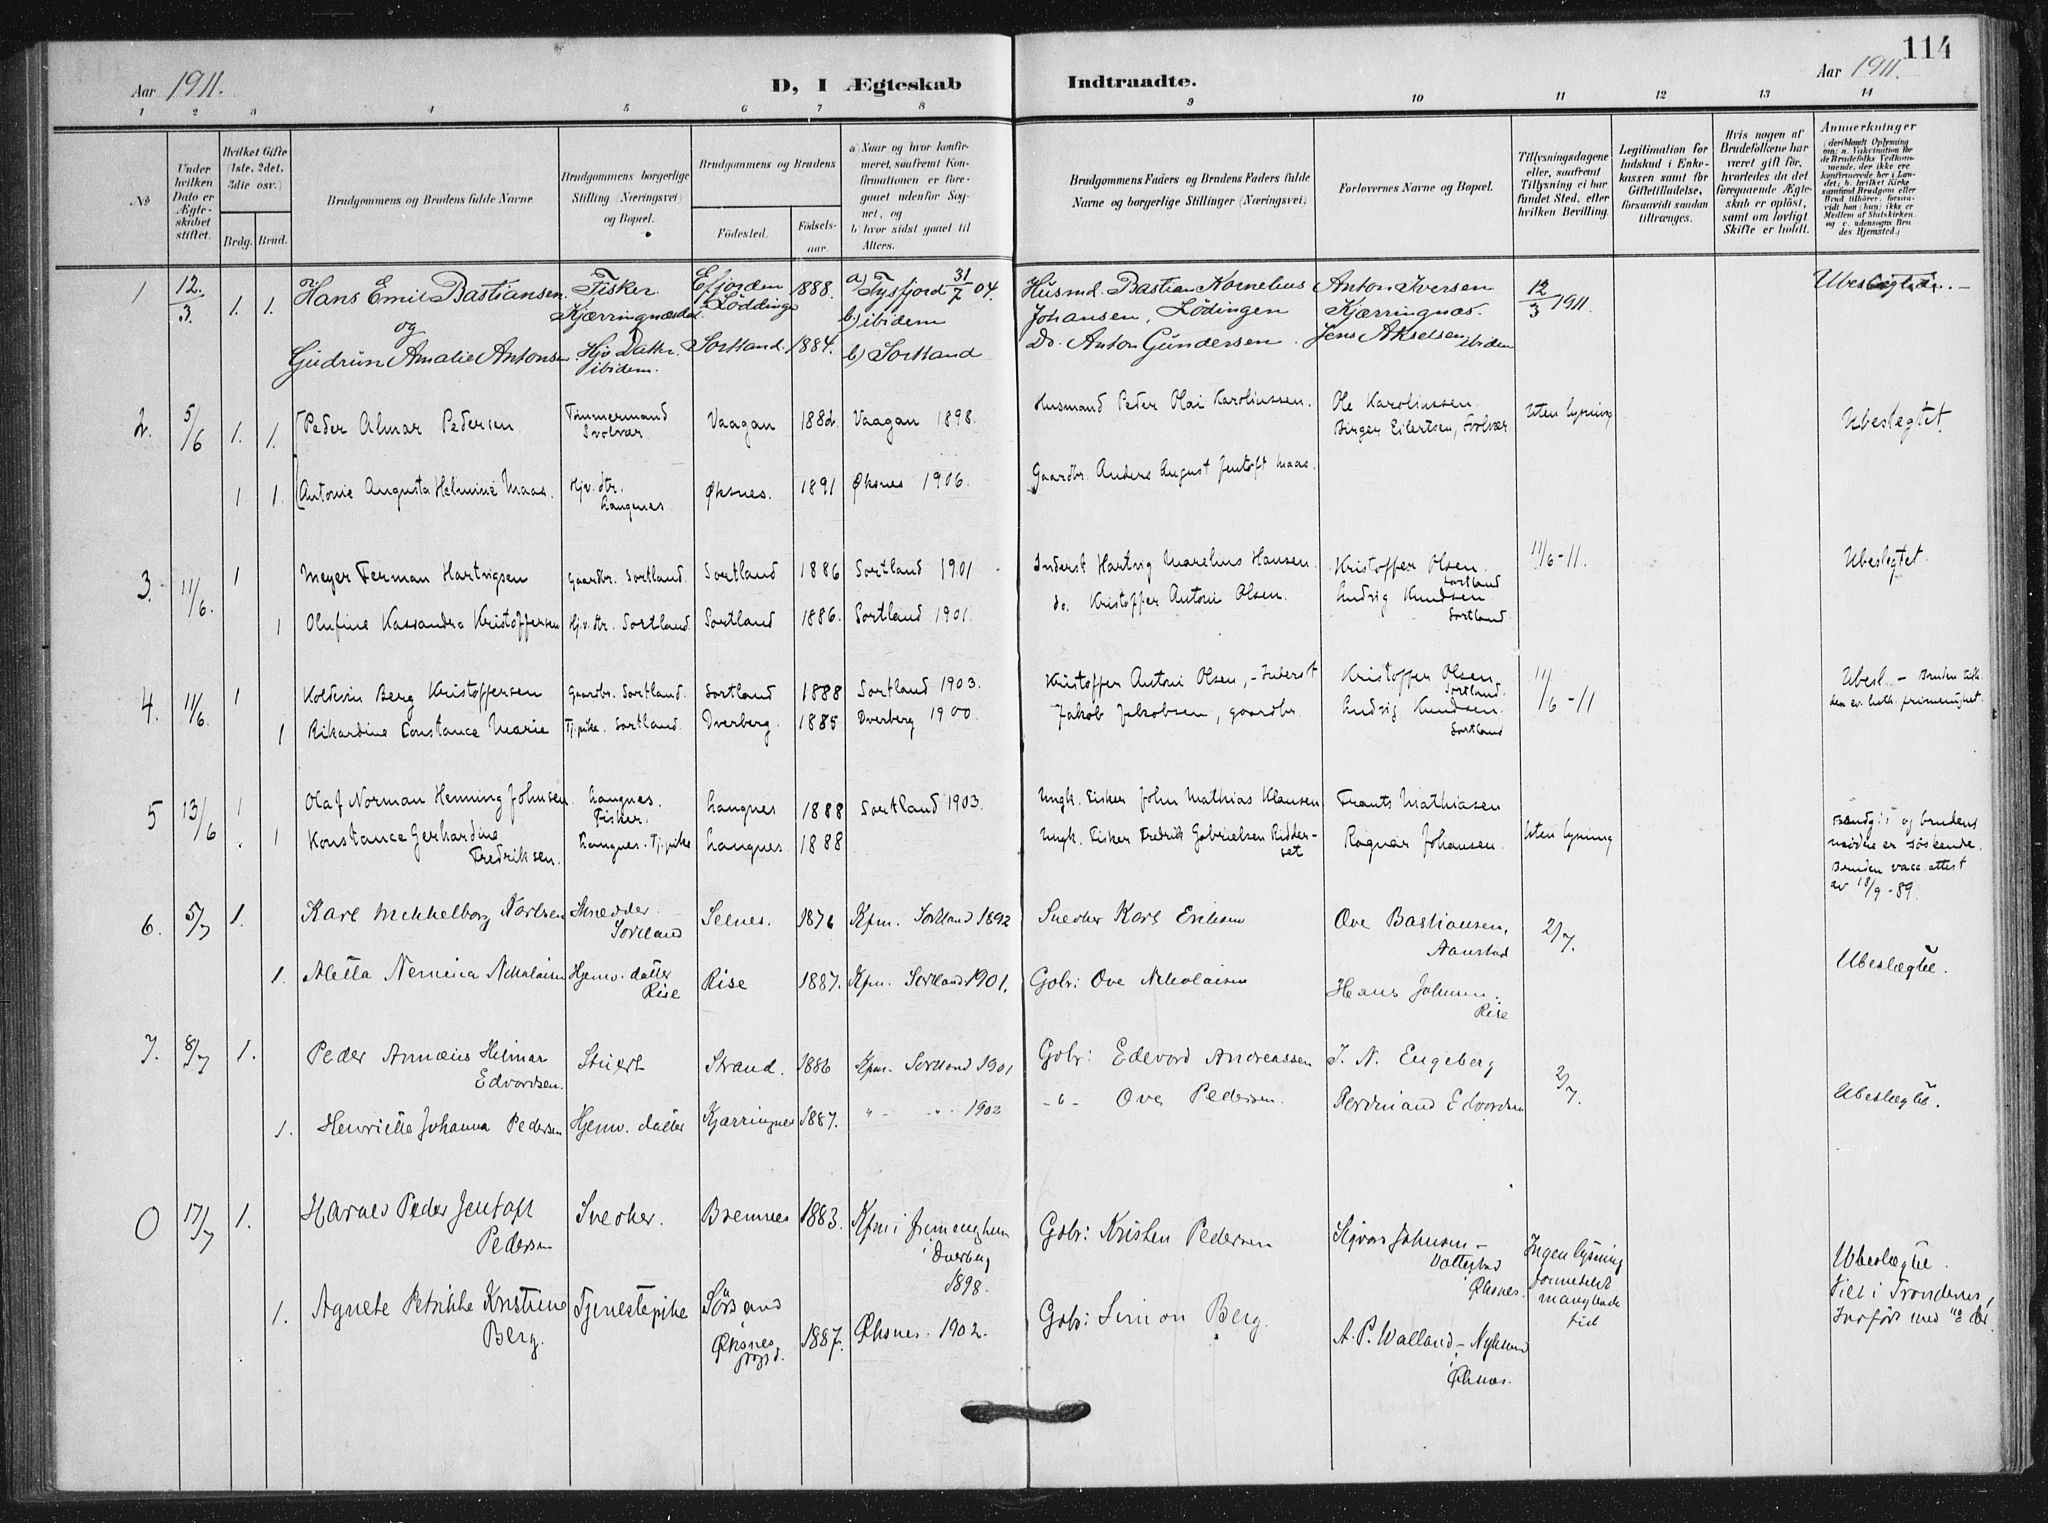 114
Aar 1911.
D, I Ægteskab Indtraadte.
Aar 1911.
1 2 3 4 5 6 7 8 9 10 11 12 13 14
No
Under hvilken Dato er Ægteskabet stiftet.
Hvilket Gifte (1ste, 2det, 3die osv.)
Brdg. Brud.
Brudgommens og Brudens fulde Navne
Brudgommens borgerlige Stilling (Næringsvei) og Bopæl.
Brudgommens og Brudens
Fødested. Fødsels-aar.
a) Naar og hvor konfirmeret, saafremt Konfirmationen er foregaaet udenfor Sognet, og
b) hvor sidst gaaet til Alters.
Brudgommens Faders og Brudens Faders fulde Navne og borgerlige Stillinger (Næringsvei)
Forlovernes Navne og Bopæl.
Tillysningsdagene eller, saafremt Tillysning ei har fundet Sted, efter hvilken Bevilling.
Legitimation for Indskud i Enkekassen samt for Giftetilladelse, forsaavidt saadan tiltrænges.
Hvis nogen af Brudefolkene har været gift før, hvorledes da det foregaaende Ægteskab er opløst, samt om lovligt Skifte er holdt.
Anmerkninger
(deriblandt Oplysning om: a. Vaccination for de Brudefolks Vedkommende, der ikke ere konfirmerede her i Landet; b. hvilket Kirkesamfund Brudgom eller Brud tilhører, forsaavidt han (hun) ikke er Medlem af Statskirken, og c. udensogns Brudes Hjemsted.)
1 12/3. 1. 1. Hans Emil Bastiansen Fisker Kjærringnæsdal Efjorden i Löddinge 1888. a) Tysfjord 31/7 04. b) ibidem Husmd. Bastian Kornelius Johansen, Lödingen Anton Iversen Kjærringnæs. 12/3 1911. Ubeslægtede.
og
Gudrun Amalie Antonsen Hjv. Datter ibidem. Sortland. 1884. b) Sortland Do. Anton Gundersen. Jens Akselsen ibidem
2. 5/6 1. 1. Peder Almar Pedersen. Tømmermand Svolvær Vaagan 1882. Vaagan 1898. Husmand Peder Olai Karoliussen. Ole Karoliussen Birger Eilertsen, Svolvær Uten lysning Ubeslegtet.
1 1. Antonie Augusta Helmine Maas. Hjv. dtr. Langnes. Øksnes. 1891 Øksnes 1906. Gaardbr. Anders August Jentoft Maas.
3. 11/6. 1 Meyer Ferman Hartvigsen Gaardbr. Sortland. Sortland 1886 Sortland 1901 Inderst Hartvig Marelius Hansen Kristoffer Olsen. Sortland 11/6-11. Ubeslegtet.
1 Olufine Kassandra Kristoffersen Hjv. dtr. Sortland. Sortland 1886. Sortland 1901. do. Kristoffer Antoni Olsen. Ludvig Knudsen Sortland.
4. 11/6. 1 Koldevin Berg Kristoffersen Gaardbr. Sortland. Sortland 1888 Sortland 1903. Kristoffer Antoni Olsen, - Inderst Kristoffer Olsen Sortland. 11/6-11 Ubesl. - Bruden tilh. den ev. luth. frimenighet.
1 Rikardine Constance Marie Tj.pike. Sortland. Dverberg. 1885 Dverberg 1900. Jakob Jakobsen, gaardbr. Ludvig Knudsen. Sortland
5 13/6 1 Olaf Norman Henning Johnsen Langnes. Fisker. Langnes 1888 Sortland 1903. Ungk. Fisker John Mathias Klausen Frants Mathiasen Uten lysning
1 Konstance Gerhardine Fredriksen. Langnes. Tj.pike Langnes 1888 Ungk. Fisker Fredrik Gabrielsen Ragnar Johansen. Brudg:s og brudens mødre er søskende. Bruden vacc. attest av 18/9-89.
6. 5/7 1. Karl Mekkelborg Karlsen Skredder Sortland Selnes. 1876 Kfm. Sortland 1892 Snedker Karl Eriksen Ove Bastiansen, Aanstad 2/7. Ubeslægtede.
1. Aletta Nemina Nikolaisen Hjemv. datter Rise Rise 1887. Kfm. Sortland 1901. Gbr: Ove Nikolaisen Hans Johnsen. Rise
7. 8/7 1. Peder Annæus Helmar Edvardsen. Stuert Strand. 1886 Kfm. Sortland 1901 Gbr: Edevard Andreassen J. N. Engeberg 2/7. Ubeslægtede.
1. Henriette Johanna Pedersen Hjemv. datter Kjærringnes 1887. " - " 1902 - " - Ove Pedersen. Ferdinand Edvardsen
0 17/7 1. Peder Jentoft Pedersen Snedker. Bremnes 1883. Kfm i frimenigheten i Dverberg 1898. Gbr: Kristen Pedersen Sigvar Johnsen - Vottestad Øksnes. Ingen lysning formedelst manglende tid Ubeslægtede. Viet i Trondenes,
1. Agnete Petrikke Kristine Berg. Tjenestepike Sørsand Øksnes prgjd. 1887. Øksnes. 1902. Gbr: Simon Berg. A. P. Walland - Nyksund Øksnes.